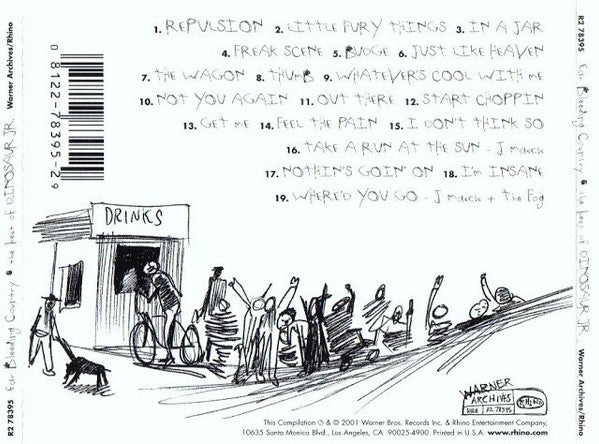 1. REPULSION 2. LITTLE FURY THINGS 3. IN A JAR
4. FREAK SCENE 5. BUDGE 6. JUST LIKE HEAVEN
7. THE WAGON 8. THUMB 9. WHATEVER'S COOL WITH ME
10. NOT YOU AGAIN 11. OUT THERE 12. START CHOPPIN
13. GET ME 14. FEEL THE PAIN 15. I DON'T THINK SO
16. TAKE A RUN AT THE SUN - J Mascis
17. NOTHIN'S GOIN' ON 18. I'm INSANE
19. WHERE'D YOU GO - J mascis + The Fog
0 81227-8395-2 9
DRINKS
WARNER
ARCHIVES
RHINO
R2 78395
This Compilation ℗ & © 2001 Warner Bros. Records Inc. & Rhino Entertainment Company,
10635 Santa Monica Blvd., Los Angeles, CA 90025-4900. Printed in U.S.A. www.rhino.com
R2 78395 Ear Bleeding Country • the best of DINOSAUR JR. Warner Archives/Rhino
R2 78395 Ear Bleeding Country • the best of DINOSAUR JR. Warner Archives/Rhino